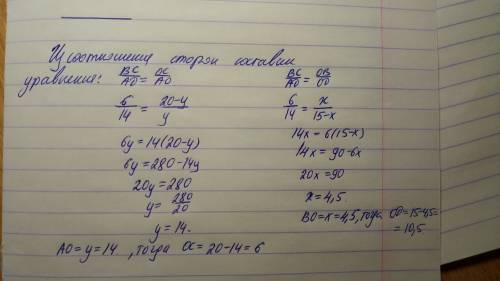 Из соотношения сторон составим
уравнение: BC/AD = OC/AO
6/14 = 20-y/y
6y = 14(20-y)
6y = 280-14y
20y = 280
y = 280/20
y = 14.
AO = y = 14 , тогда OC = 20-14 = 6
BC/AD = OB/OD
6/14 = x/15-x
14x = 6(15-x)
14x = 90-6x
20x = 90
x = 4,5.
BO = x = 4,5, тогда OD = 15-4,5 =
= 10,5